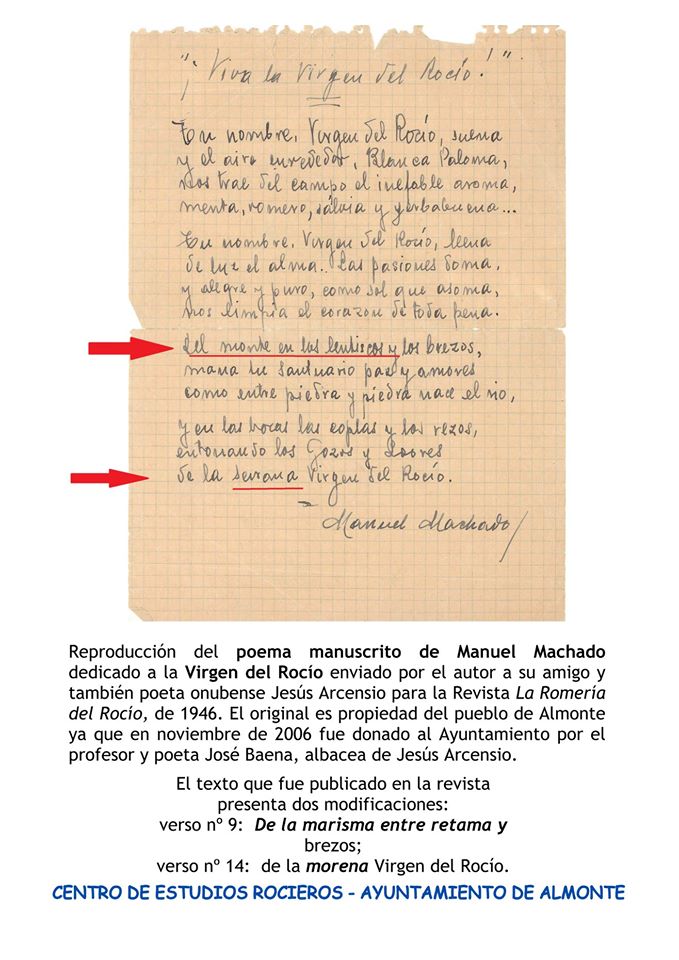 "¡Viva la Virgen del Rocío!".
Tu nombre, Virgen del Rocío, suena
y el aire enrededor, Blanca Paloma,
nos trae del campo el inefable aroma,
menta, romero, sálvia y yerbabuena...
Tu nombre, Virgen del Rocío, llena
de luz el alma.. Las pasiones doma,
y alegre y puro, como sol que asoma,
nos limpia el corazon de toda pena.
Del monte en los lentiscos y los brezos,
mana tu santuario paz y amores
como entre piedra y piedra nace el rio,
y en las bocas las coplas y los rezos,
entonando los Gozos y Loores
de la serrana Virgen del Rocío.
Manuel Machado
Reproducción del poema manuscrito de Manuel Machado
dedicado a la Virgen del Rocío enviado por el autor a su amigo y
también poeta onubense Jesús Arcensio para la Revista La Romería
del Rocío, de 1946. El original es propiedad del pueblo de Almonte
ya que en noviembre de 2006 fue donado al Ayuntamiento por el
profesor y poeta José Baena, albacea de Jesús Arcensio.
El texto que fue publicado en la revista
presenta dos modificaciones:
verso nº 9: De la marisma entre retama y
brezos;
verso nº 14: de la morena Virgen del Rocío.
CENTRO DE ESTUDIOS ROCIEROS - AYUNTAMIENTO DE ALMONTE